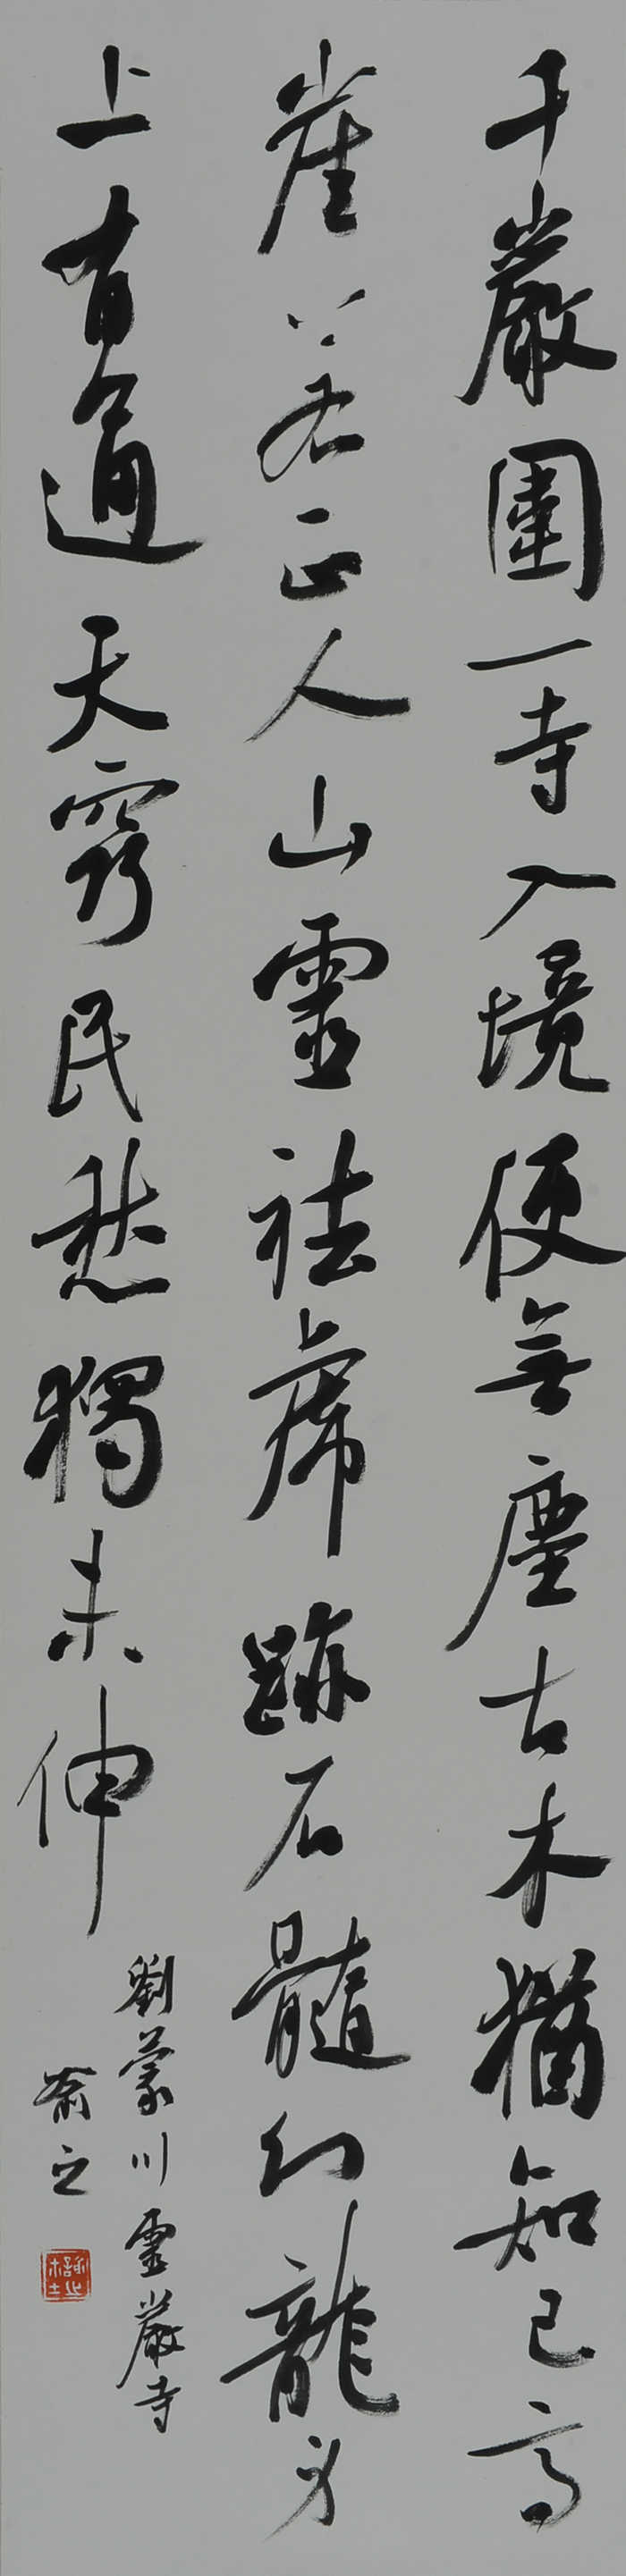 千巖圍一寺入境便無塵古木猶知己高
崖若正人山靈祛虎跡石髓幻龍身
上有通天竅民愁獨未伸
劉蒙川靈巖寺